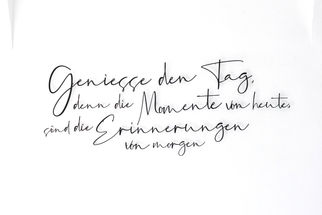 Geniesse den Tag,
denn die Momente von heute,
sind die Erinnerungen
von morgen